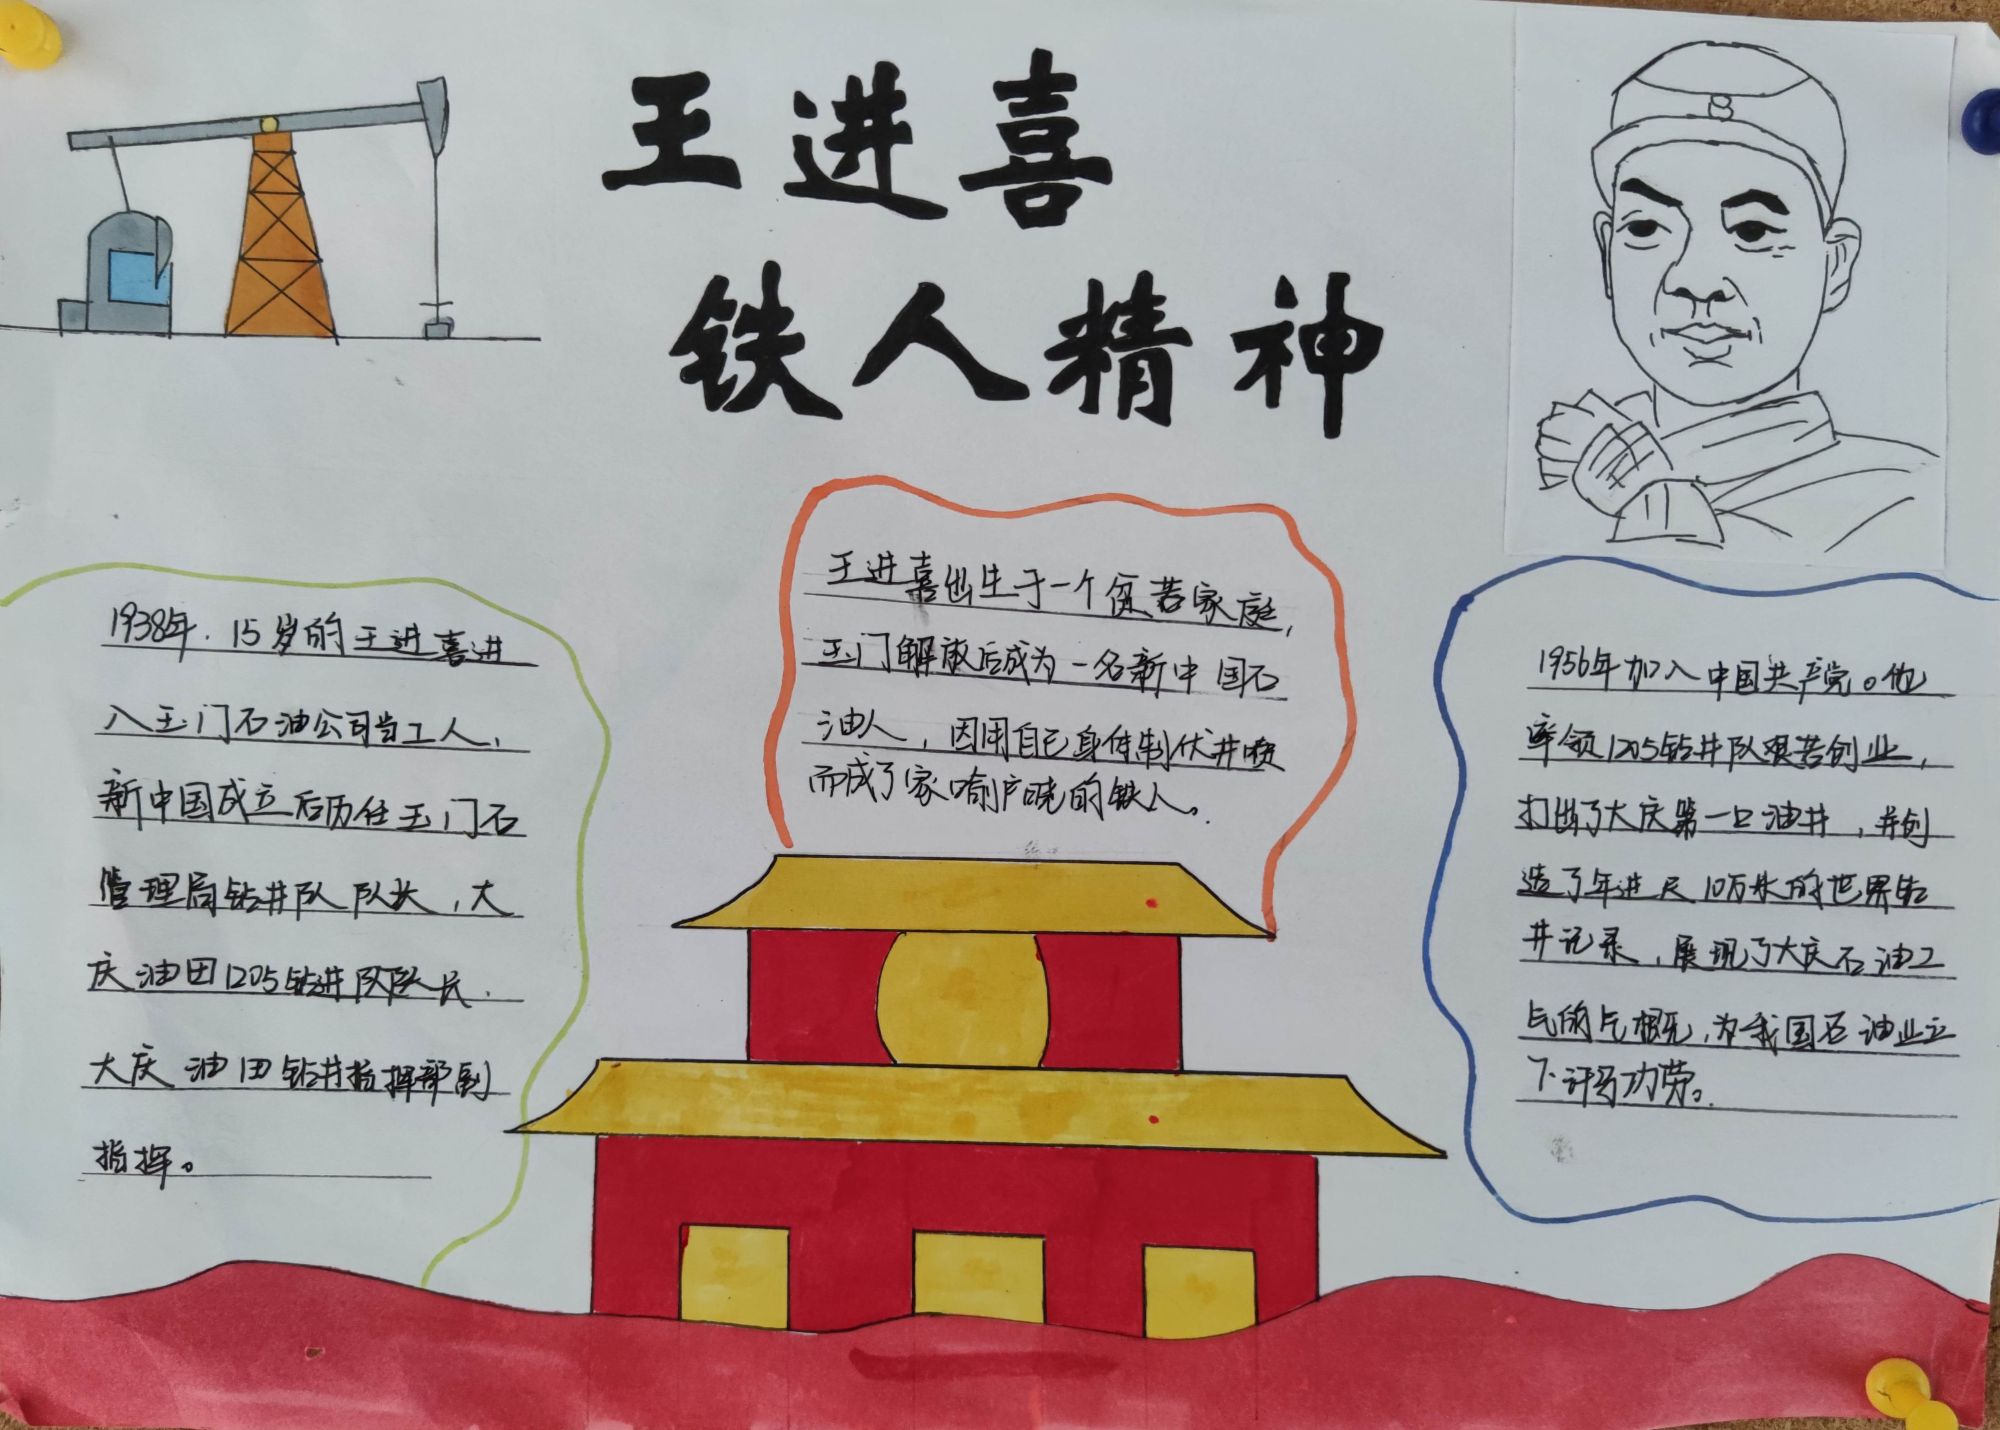 王进喜
铁人精神
1938年，15岁的王进喜进
入玉门石油公司当工人，
新中国成立后历任玉门石
管理局钻井队队长，大
庆油田1205钻井队队长，
大庆油田钻井指挥部副
指挥。
王进喜出生于一个贫苦家庭，
玉门解放后成为一名新中国石
油人，因用自己身体制伏井喷
而成了家喻户晓的铁人。
1956年加入中国共产党。他
率领1205钻井队艰苦创业，
打出了大庆第一口油井，并创
造了年进尺10万米的世界钻
井记录，展现了大庆石油工
人的气概，为我国石油业立
下汗马功劳。